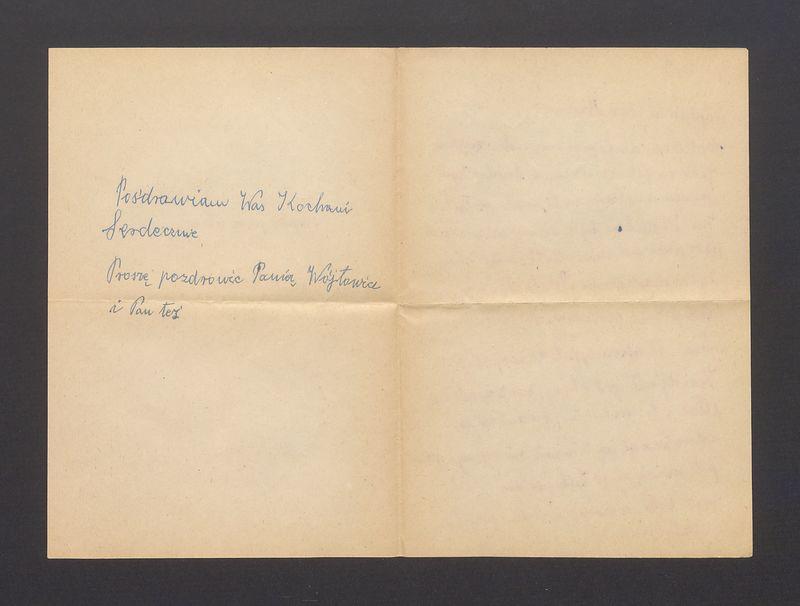 Pozdrawiam Was Kochani
Serdecznie
Proszę pozdrowić Panią Wójtowic
i Pan też